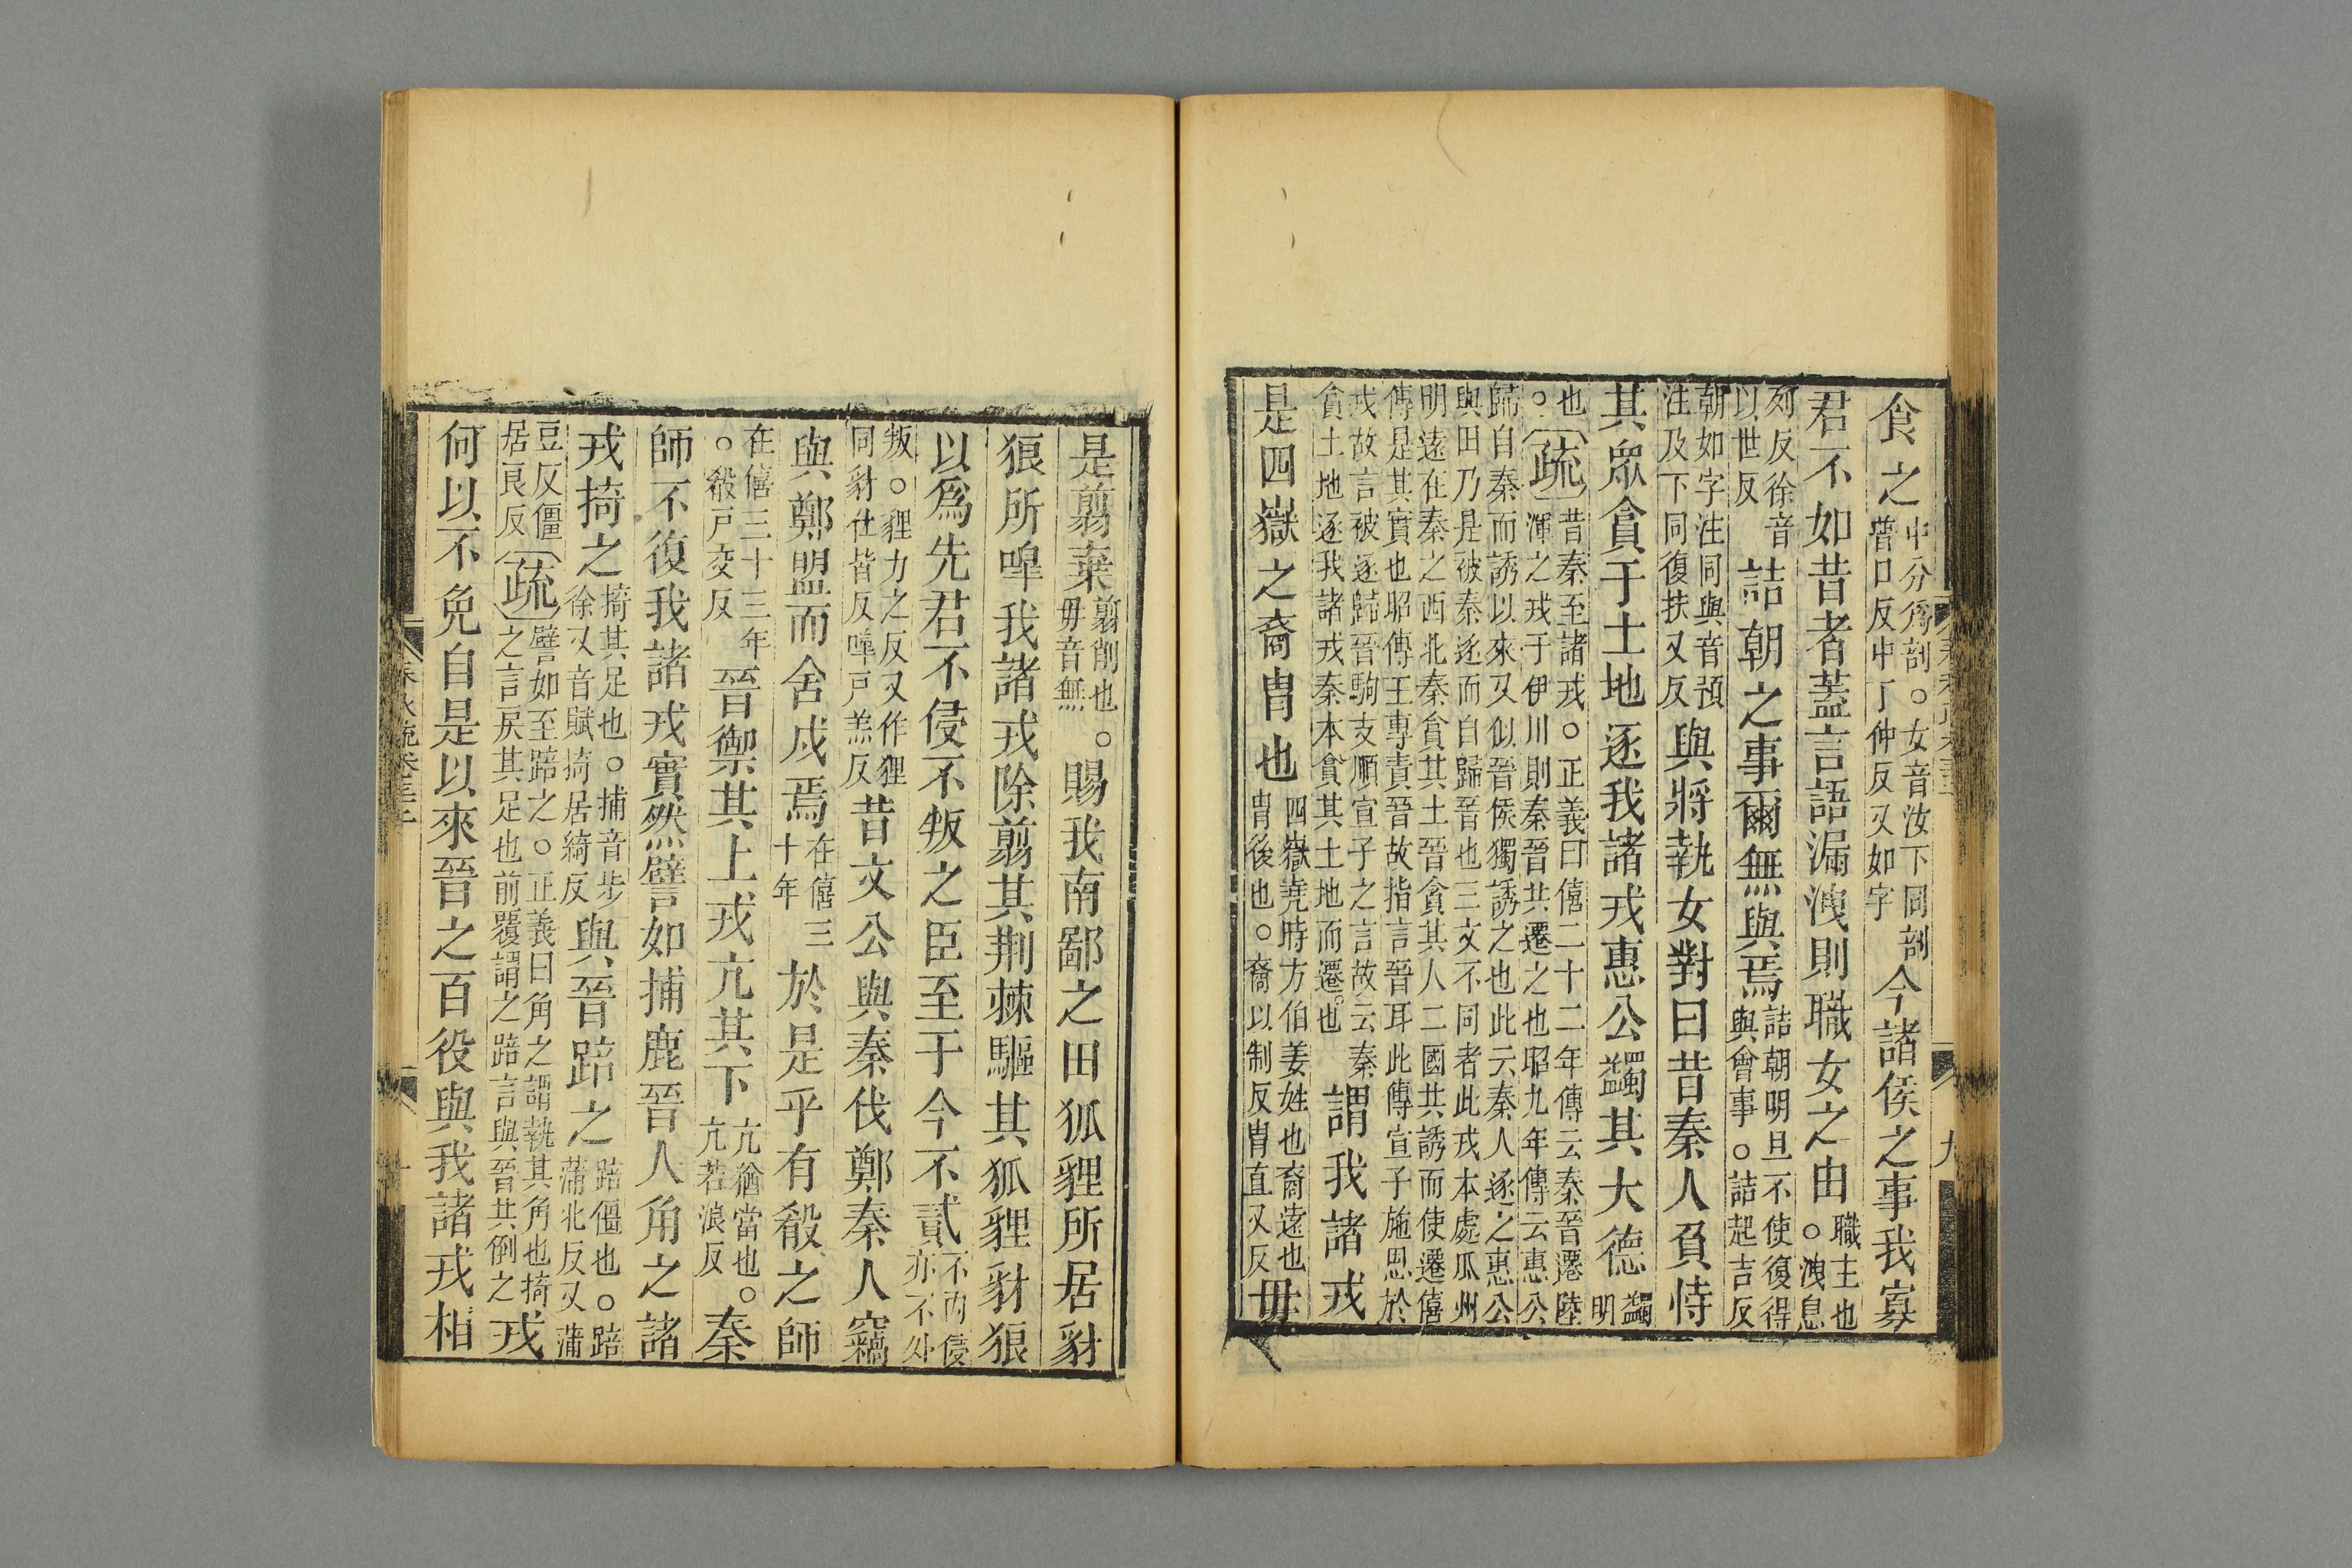 食之中分爲剖。女音汝下同剖普口反中丁仲反又如字今諸侯之事我寡
君不如昔者蓋言語漏洩則職女之由職主也。洩息
列反徐音以世反詰朝之事爾無與焉詰朝明旦不使復得與會事。詰起吉反
朝如字注同與音預注及下同復扶又反與將執女對曰昔秦人負恃
其眾貪于土地逐我諸戎惠公蠲其大德蠲明
也。疏昔秦至諸戎。正義曰僖二十二年傳云秦晉遷陸渾之戎于伊川則秦晉共遷之也昭九年傳云惠公
歸自秦而誘以來又似晉侯獨誘之也此云秦人逐之惠公與田乃是被秦逐而自歸晉也三文不同者此戎本處瓜州
明遠在秦之西北秦貪其土晉貪其人二國共誘而使遷僖傳是其實也昭傳王專責晉故指言晉耳此傳宣子施恩於
戎故言被逐歸晉駒支順宣子之言故云秦貪土地逐我諸戎秦本貪其土地而遷之也謂我諸戎
是四嶽之裔胄也四嶽堯時方伯姜姓也裔遠也胄後也。裔以制反胄直又反毋
是翦棄翦削也。毋音無賜我南鄙之田狐貍所居豺
狼所嘷我諸戎除翦其荆棘驅其狐貍豺狼
以爲先君不侵不叛之臣至于今不貳不內侵亦不外
叛。貍力之反又作狸同豺仕皆反嘷戸羔反昔文公與秦伐鄭秦人竊
與鄭盟而舍戍焉在僖三十年於是乎有殽之師
在僖三十三年。殽戸交反晉禦其上戎亢其下亢猶當也。亢苦浪反秦
師不復我諸戎實然譬如捕鹿晉人角之諸
戎掎之掎其足也。捕音步徐又音賦掎居綺反與晉踣之踣僵也。踣蒲北反又蒲
豆反僵居良反疏譬如至踣之。正義曰角之謂執其角也掎之言戾其足也前覆謂之踣言與晉共倒之戎
何以不免自是以來晉之百役與我諸戎相